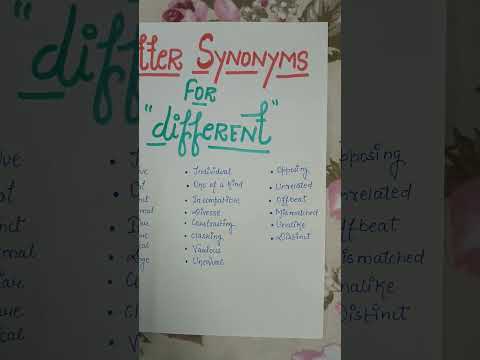 tter Synonyms
For
"different"
• Individual
• One of a kind
• Incompatible
• Diverse
• Contrasting
• Clashing
• Various
• Unequal
• Opposing
• Unrelated
• Offbeat
• Mismatched
• Unalike
• Distinct